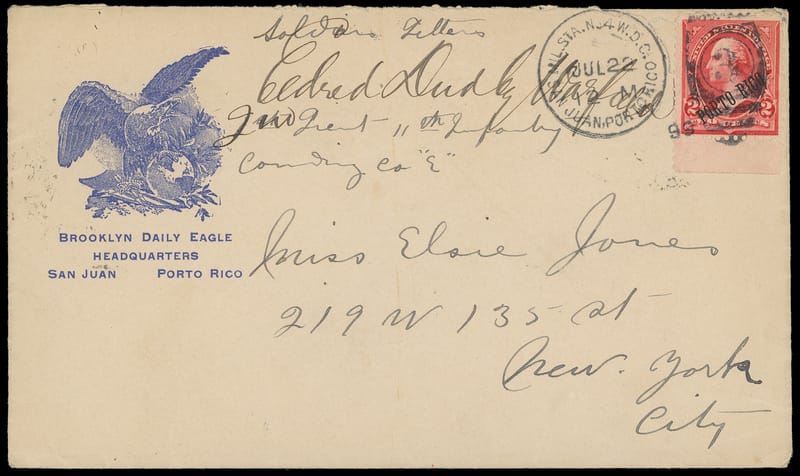 Soldiers Letters
2nd Lieut 11th Infantry
Comding Co "E"
BROOKLYN DAILY EAGLE
HEADQUARTERS
SAN JUAN PORTO RICO
MIL. STA. No. 4 W.D.C.
JUL 22
SAN JUAN, PORTO RICO
PORTO RICO
2 2
Miss Elsie Jones
219 W 135 st
New. York
City